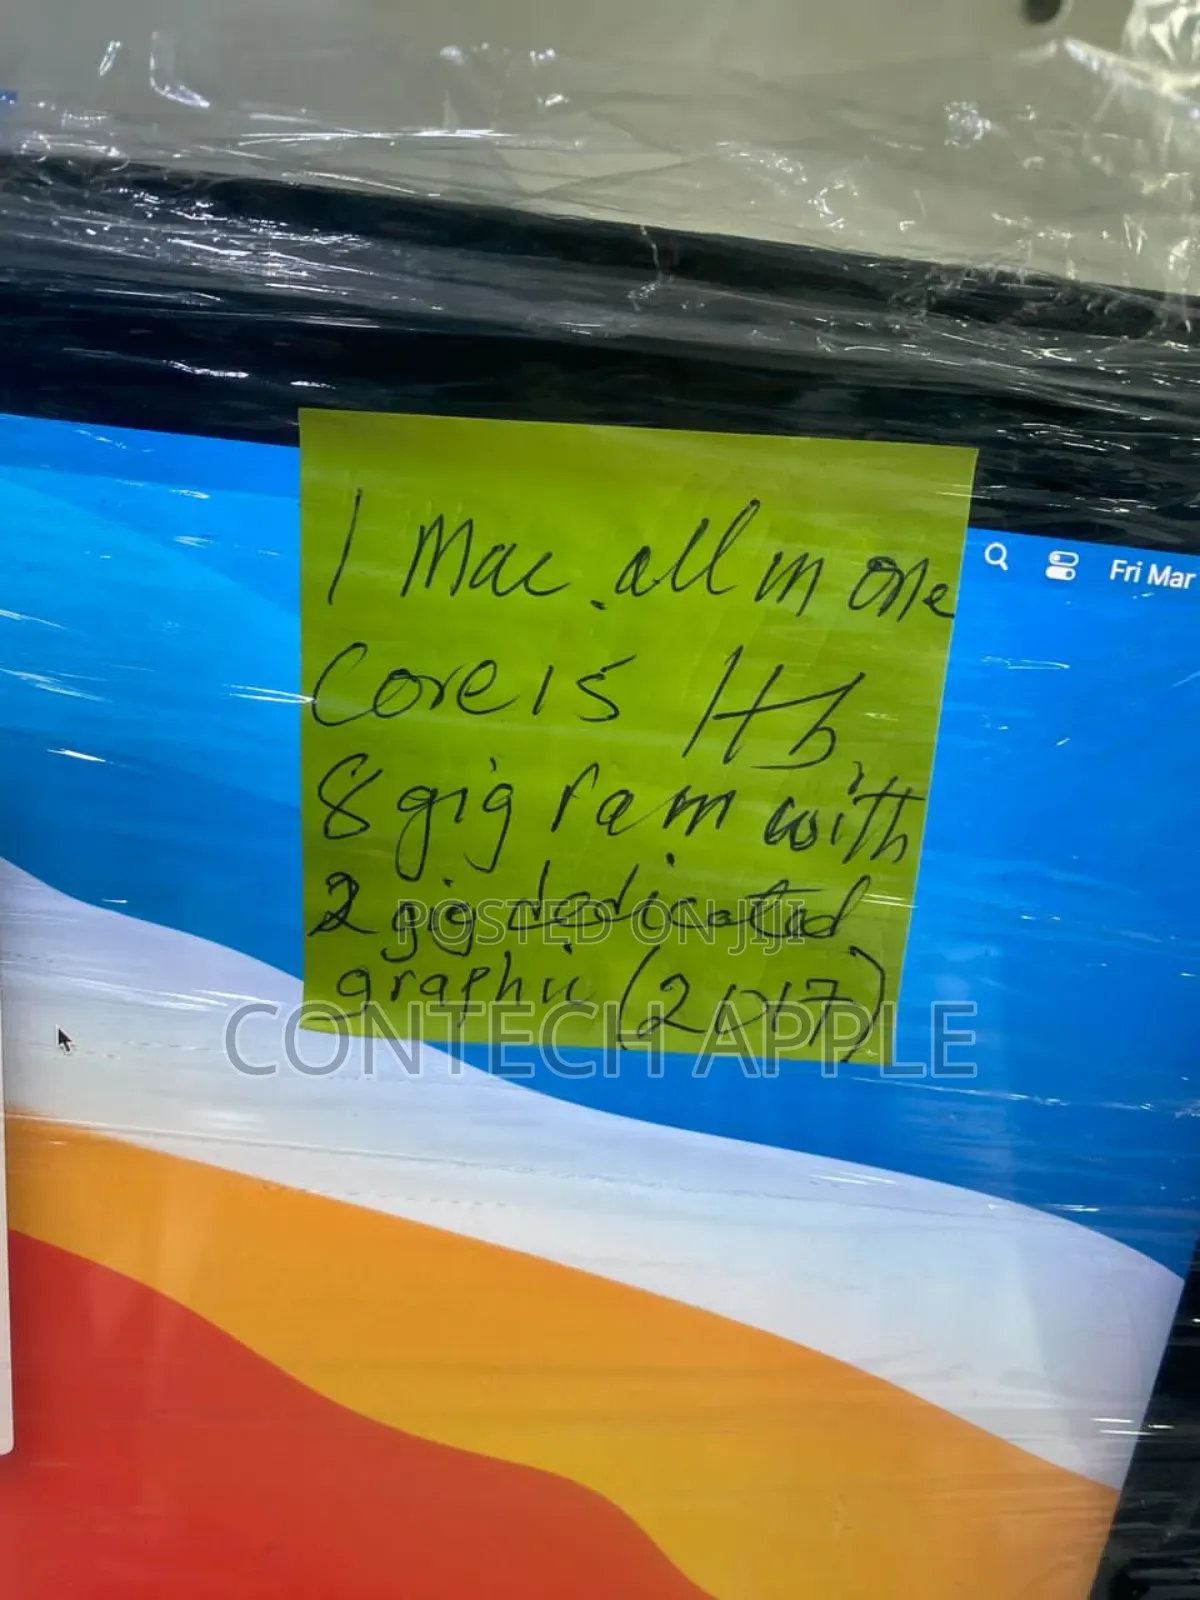 Fri Mar
1 Mac all in one
Core i5 1Tb
8 gig ram with
2 gig dedicated
graphic (2017)
POSTED ON JIJI
CONTECH APPLE